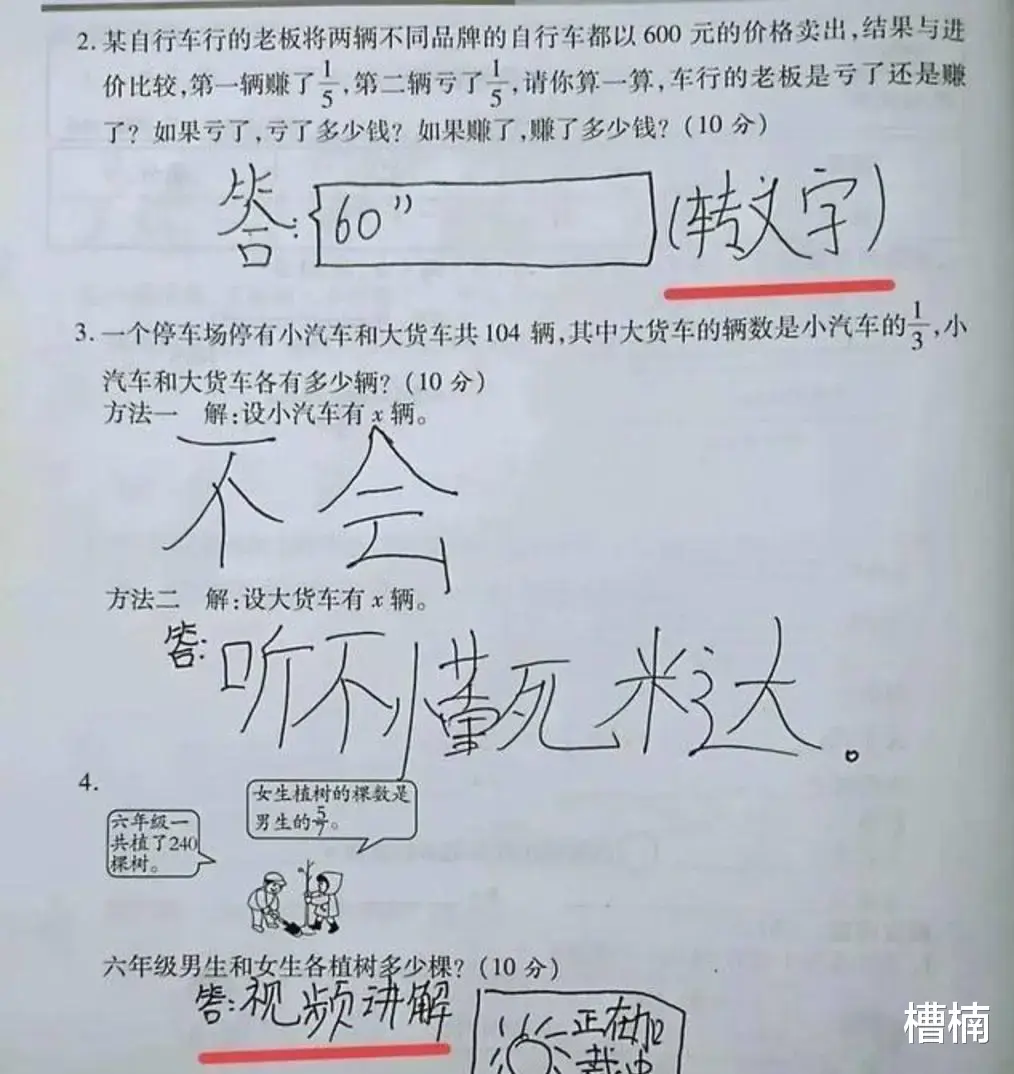 2. 某自行车行的老板将两辆不同品牌的自行车都以 600 元的价格卖出,结果与进
价比较,第一辆赚了1/5,第二辆亏了1/5,请你算一算,车行的老板是亏了还是赚
了? 如果亏了,亏了多少钱? 如果赚了,赚了多少钱? (10 分)
答: 60” (转文字)
3. 一个停车场停有小汽车和大货车共 104 辆,其中大货车的辆数是小汽车的1/3,小
汽车和大货车各有多少辆? (10 分)
方法一 解:设小汽车有 x 辆。
不会
方法二 解:设大货车有 x 辆。
答: 听不懂死米达。
4.
女生植树的棵数是
男生的5/7。
六年级一
共植了240
棵树。
六年级男生和女生各植树多少棵? (10 分)
答: 视频讲解
正在加
载中
槽楠